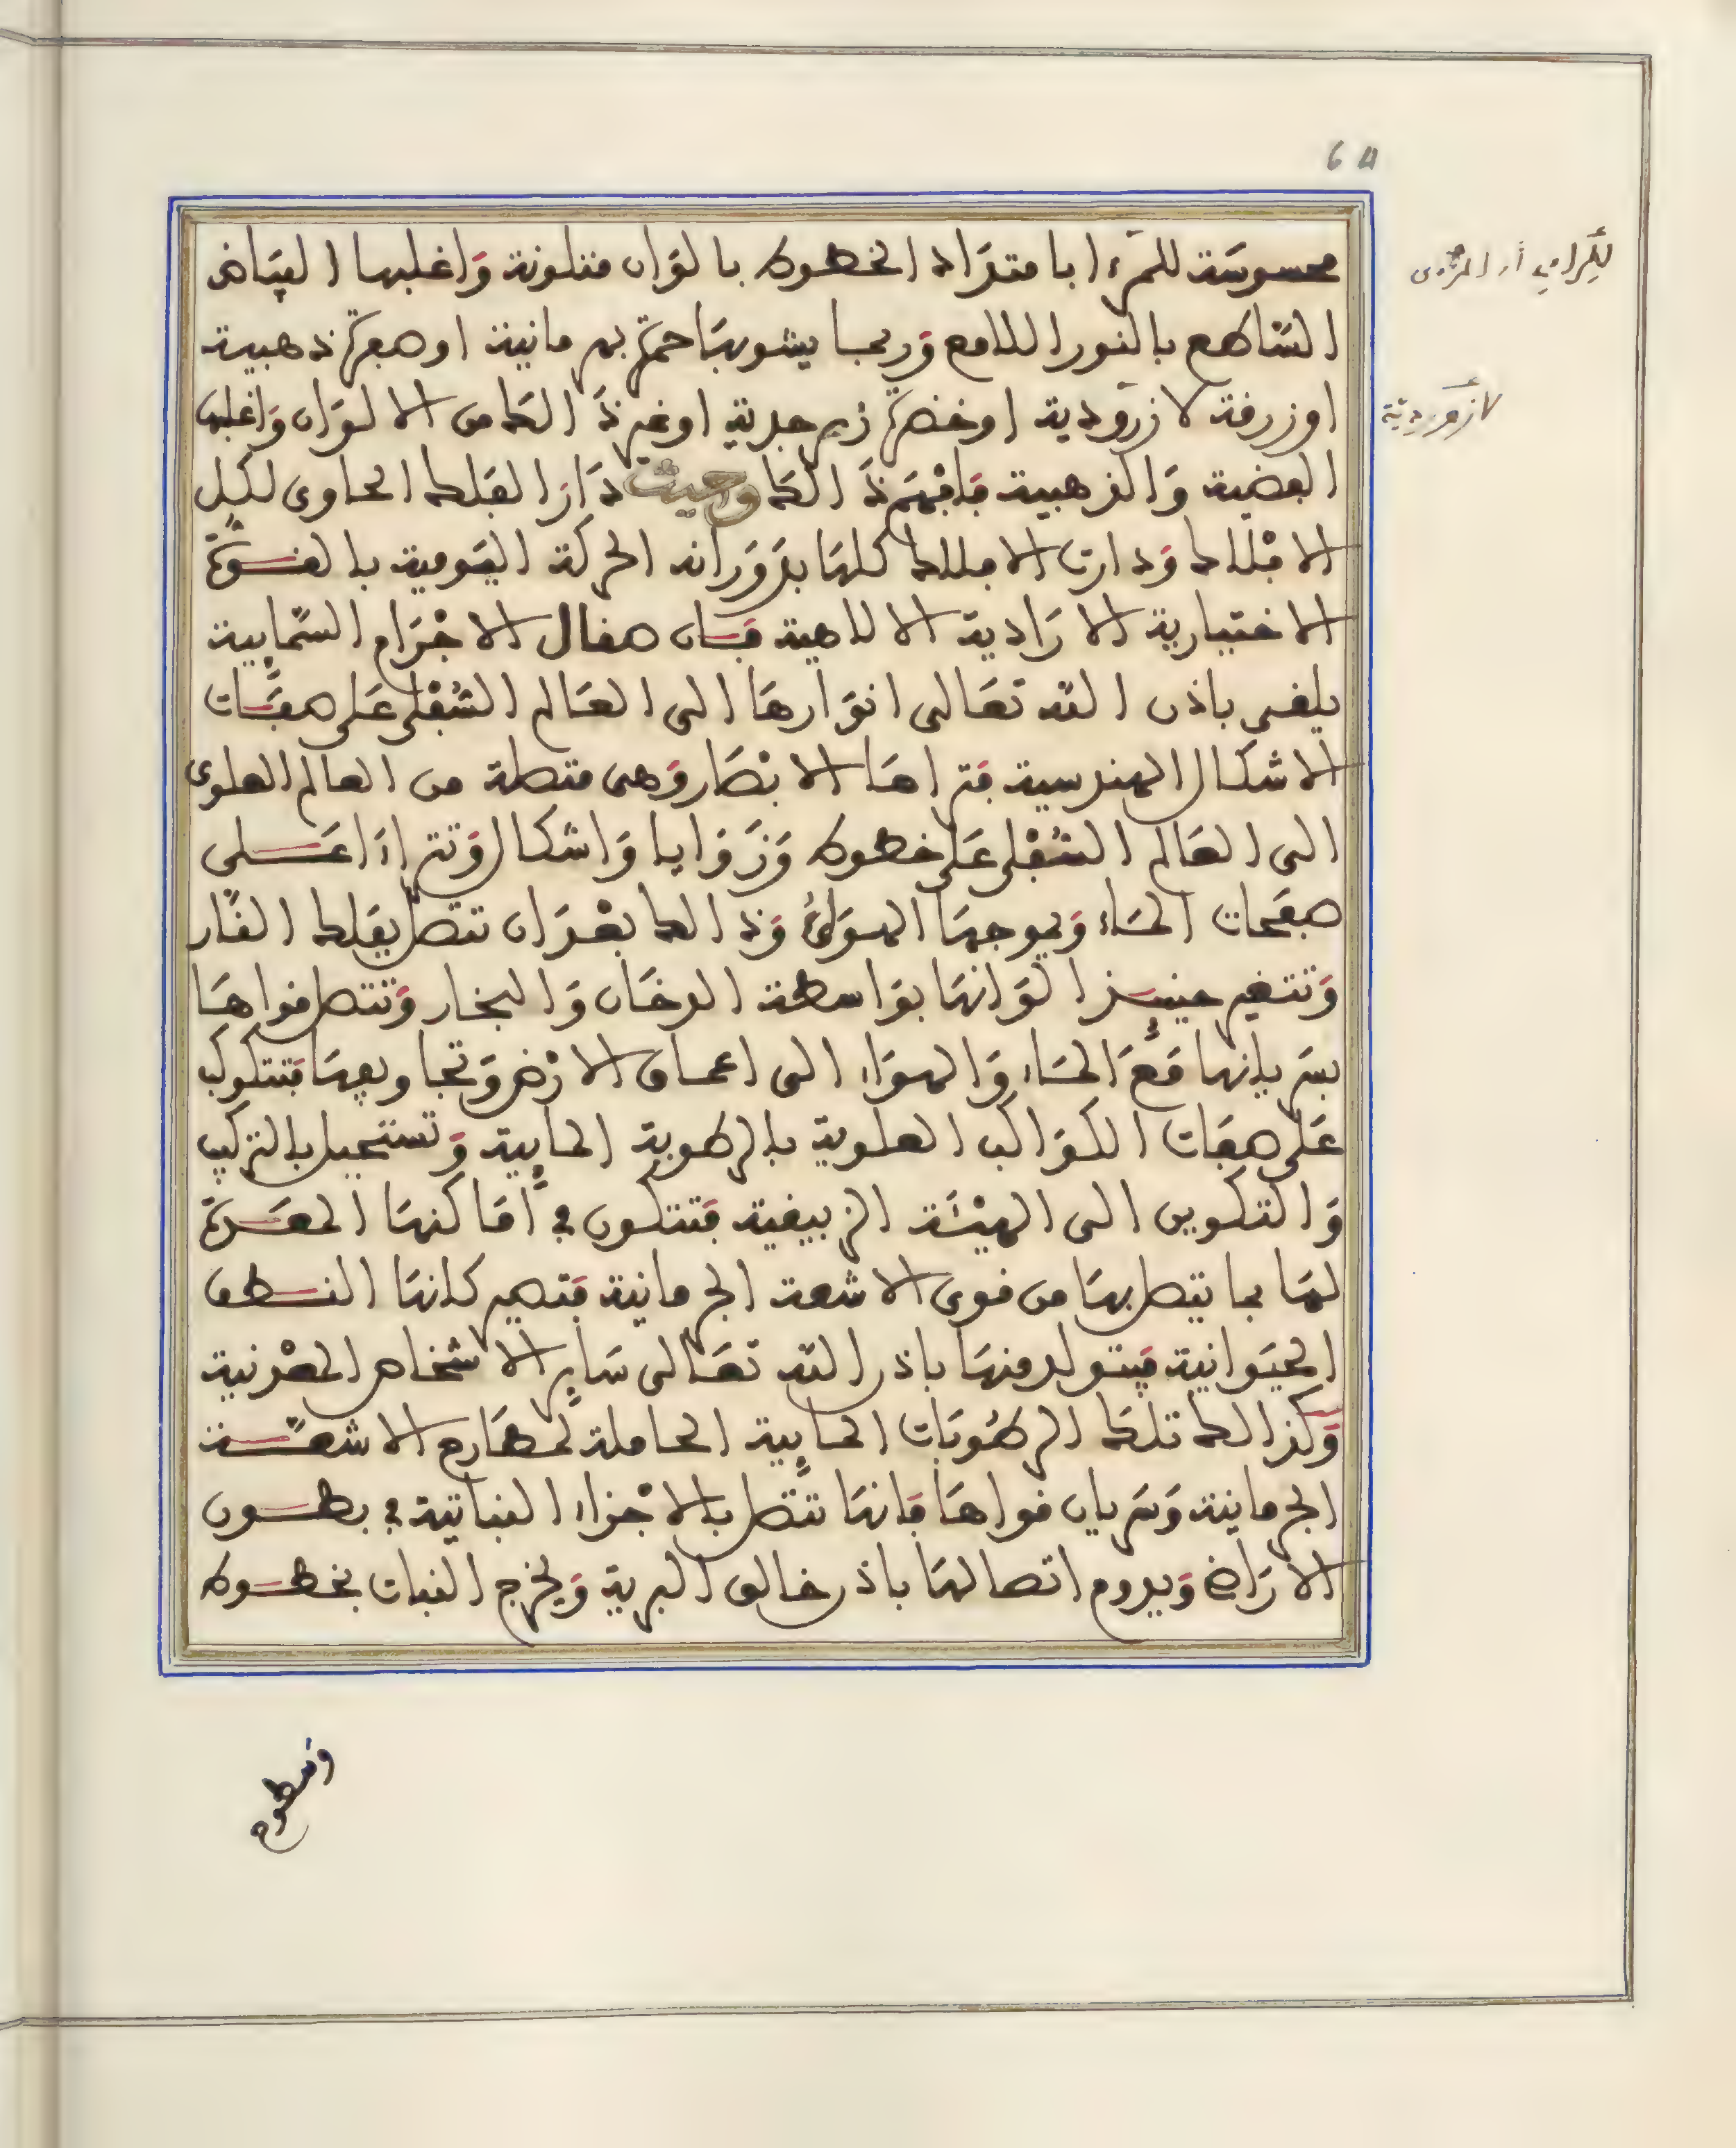 64
محسوسَة للمَرْءِ ا بامتدَاد الخطوط بالوَان متلونة وَاغلبها البيَاض
السَّاطع بالنور اللامع وَربما يشوبهَا حمرَة بهرمانية اوصفرَة ذهبية
اوزرقة لازرودية اوخضرَة زبرجدية اوغير ذَالكَ من الالوَان وَاغلبها
الفضية وَالذهبية فَافْهَم ذَالكَ وحيث دَارَ الفلك الحاوى لكل
الافْلاك وَدارت الافلاك كلهَا بدَوَرَانه الحركة اليَومية بالقـوَّة
الاختيارية الارَادية الالاهية فَـان صقال الاجْرَام السَّمَايِية
يلقى باذن اللّه تعَالى انوَارهَا الى العَالم السُّفْلى عَلى صفَـات
الاشكال الهندسية فتراهَا الابْصَار وَهى متصلة من العالم العلوى
الى العَالم السُّفْلى عَلى خطوط وَزَوَايا وَاشكال وَتترَاءَا عَـلى
صفَحات المَاء وَيموجهَا الهوَاءُ وَذالك بعْدَ ان تتصل بفلك النَّار
وَتتغير حينئِـذ الوَانهَا بوَاسطة الدخَان وَالبخار وَتتصل قواهَا
بسَرَيانها مَعَ المَاء وَالهوَاء الى اعماق الارْض وَتجاويفهَا فتتكوكب
عَلى صفَات الكوَاكب العلوية بالرطوبة المايِية وَتستحيل بالتركيب
وَالتكوين الى الهيْئَة الزيبقية فَتتكون في أمَاكنهَا المعَـدَّة
لهَا بما يتصل بهَا من قوى الاشعة الجرمانية فَتصير كانهَا النـطف
الحيَوانية فيتولد منهَا باذن اللّه تعَالى سَايِر الاشخاص المعْدنية
وَكذالك تلكَ الرطُوبَات المايِية الحاملة لمطَارح الاشعَّـة
الجرمانية وَسَرَيان قواهَا فانهَا تتَّصل بالاجْزاء النباتية في بطـون
الارَاضي وَيدوم اتصالهَا باذن خالق البرية وَيخرج النبات بخطـوط
وسطوح
لازمردية